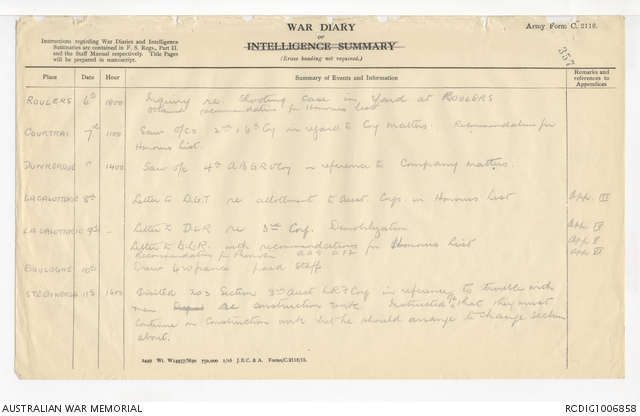 WAR DIARY
or
INTELLIGENCE SUMMARY
(Erase heading not required.)
Army Form C. 2118.
Instructions regarding War Diaries and Intelligence
Summaries are contained in F. S. Regs., Part II.
and the Staff Manual respectively. Title Pages
will be prepared in manuscript.
357
Place Date Hour Summary of Events and Information Remarks and references to Appendices
ROULERS 6th 1800 Inquiry re shooting case in Yard at ROULERS
obtained recommendation for Honours List
COURTRAI 7th 1100 Saw o/cs 2nd & 6th Coy in regard to Coy matters. Recommendation for
Honours List.
DUNKERQUE " 1400 Saw o/c 4th A B G R O Coy in reference to Company matters.
8th Letter to D.G.T re allotment to Aust. Corps. in Honours List App. III
9th - Letter to re 3rd Coy. Demobilization App IV
Letter to with recommendations for Honours List App V
Recommendation for App VI
BOULOGNE 10th Drew francs paid Staff
11th 1600 Visited Section 3rd Aust Coy in reference to trouble with
men re construction work. Instructed that they must
continue on Construction work but he should arrange to change Section
about.
2449 Wt. W14957/M90 750,000 1/16 J.B.C. & A. Forms/C.2118/12.
AUSTRALIAN WAR MEMORIAL
RCDIG1006858